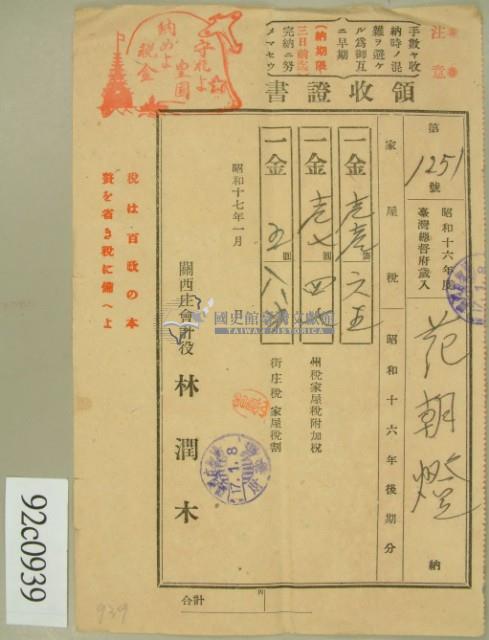 注意
手數ヤ收
納時ノ混
雜ヲ避ケ
ル爲御互
ニ早期
(納期限
三日前迄)
完納ニ努
メマセウ
守れよ
皇国
納めよ
税金
領收證書
第1251號
昭和十六年度
臺灣總督府歲入
范朝燈 納
家屋稅 昭和十六年後期分
一金 壱壱 圓 六五
一金 壱七 圓 四七
州稅家屋稅附加稅
一金 五 圓 八
街庄稅 家屋稅割
昭和十七年一月
關西庄會計役 林潤木
17.1.8
17.1.8
合計
税は百政の本
贅を省き税に備へよ
國史館臺灣文獻館
TAIWAN HISTORICA
92c0939
939